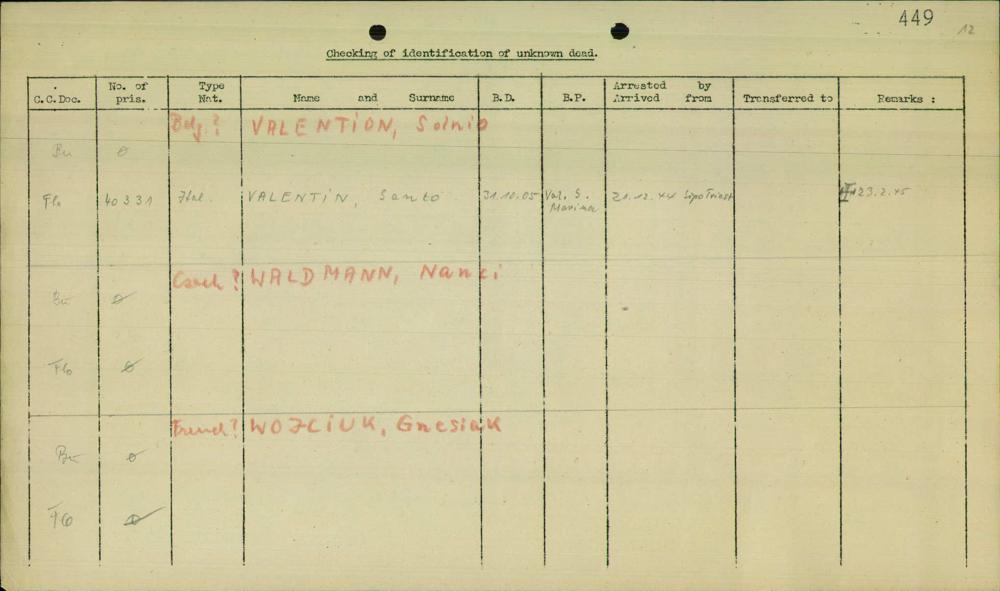 449
12
Checking of identification of unknown dead.
C.C.Doc. No. of pris. Type Nat. Name and Surname B.D. B.P. Arrested by Arrived from Transferred to Remarks :
Belg? VALENTiON, Solnio
Bu ø
Flo 40331 Ital. VALENTiN, Santo 31.10.05 Val. S. 21.12.44 Sipo Triest 23.2.45
Czech? WALDMANN, Nanci
Bu ø
Flo ø
French? WOJCiUK, Gnesiak
Bu ø
Flo ø